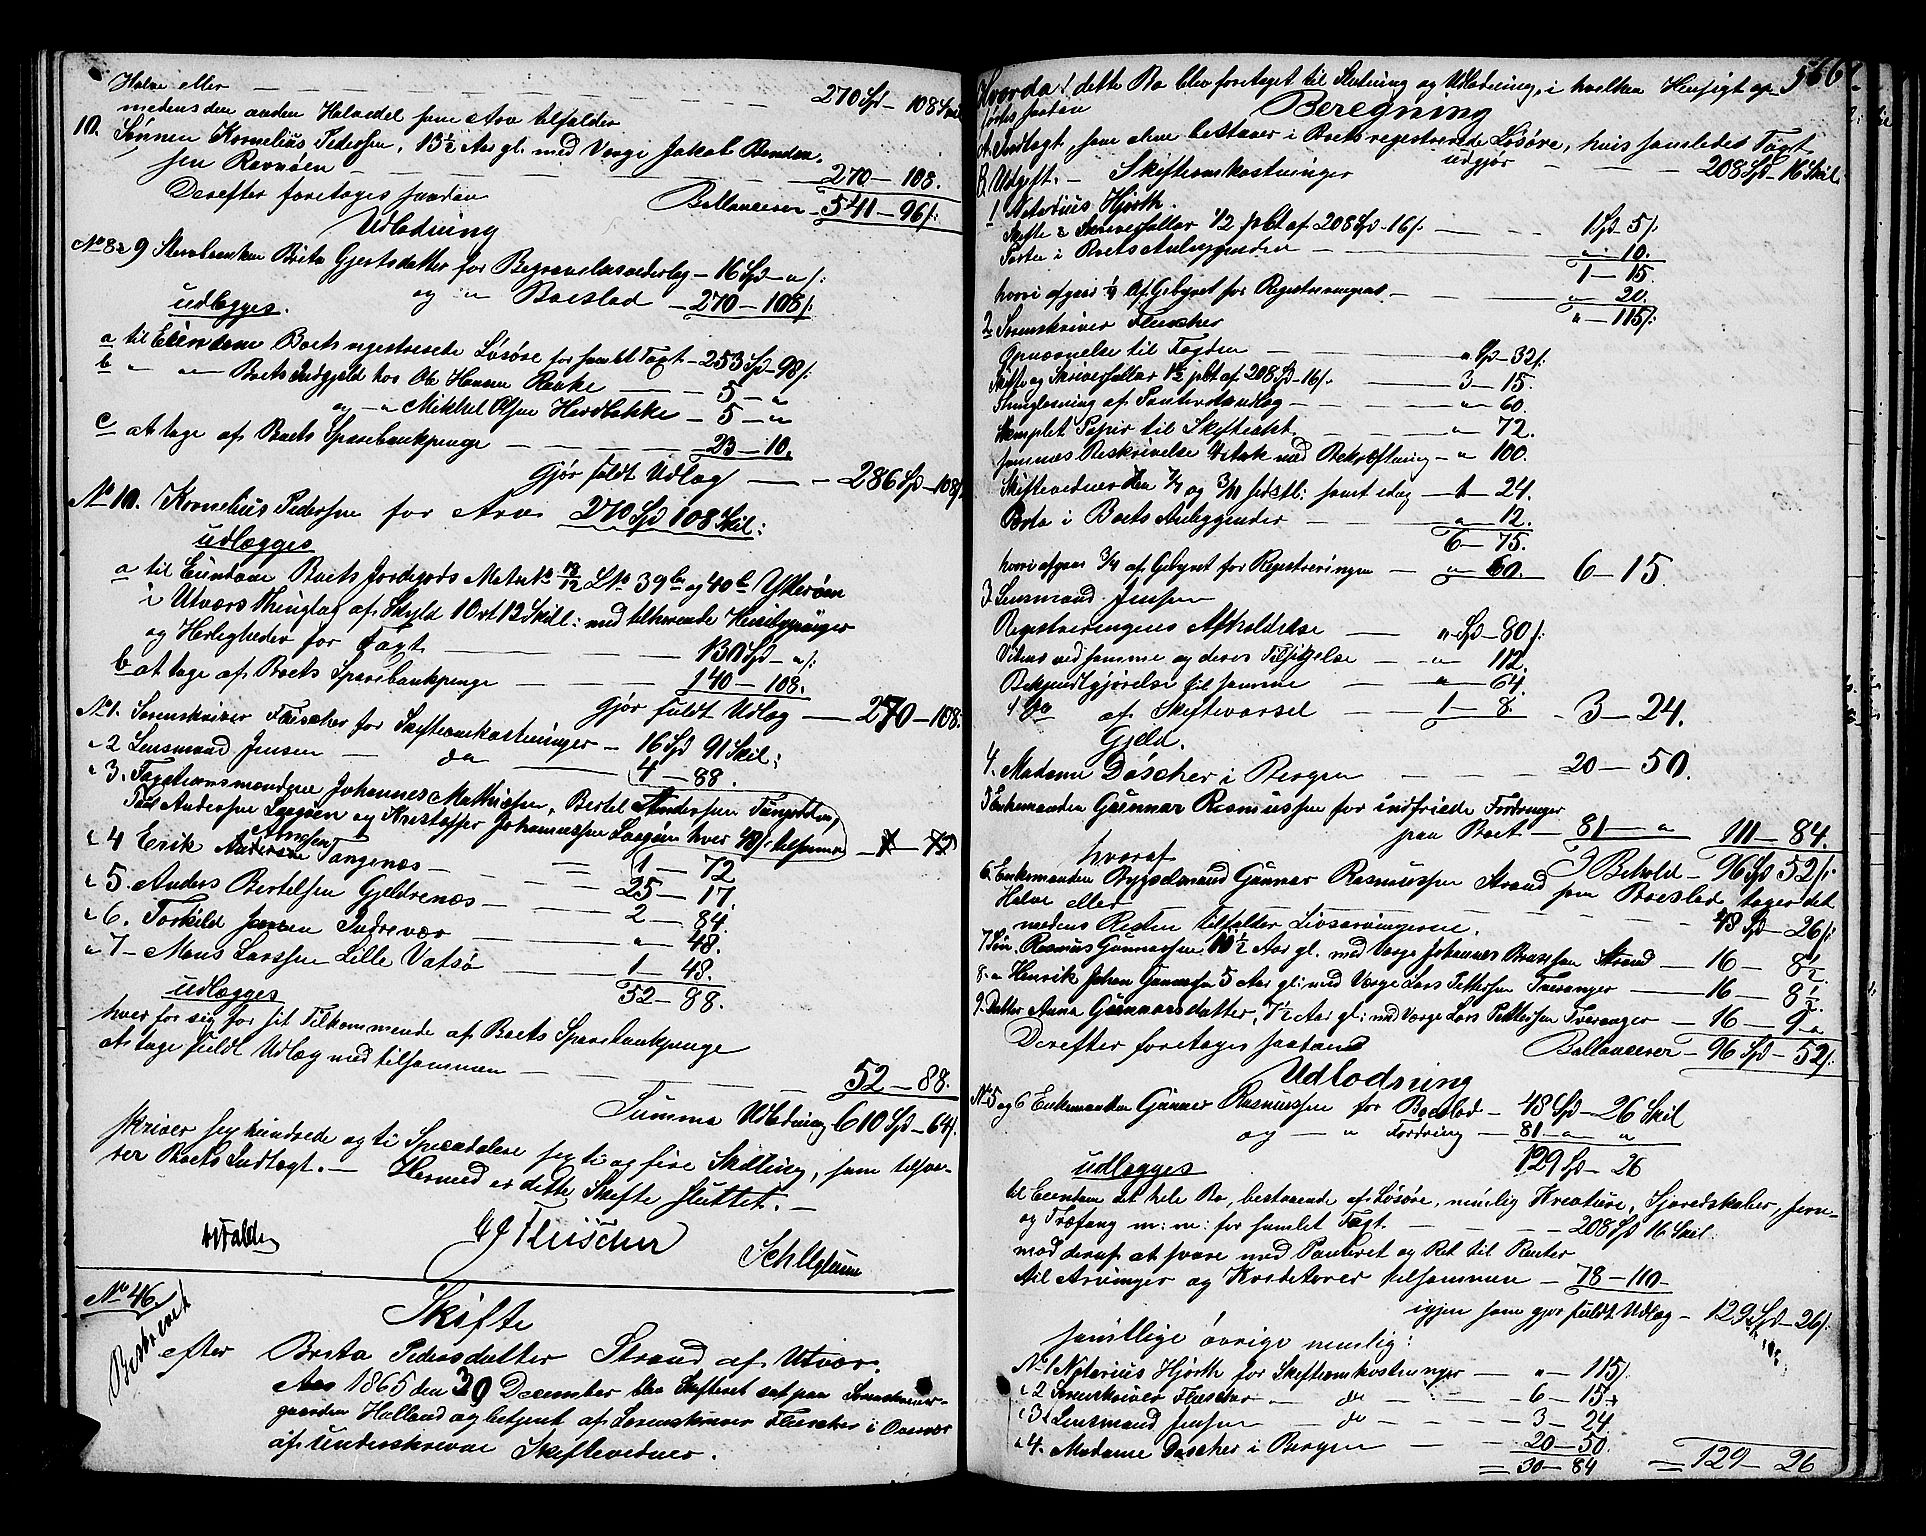 Halve eller — 270 Spd — 108 Skil
medens den anden Halvedel som Arv tilfalder
10. Sønnen Kornelius Pedersen, 13½ Aar gl. med Verge Jakob Benden-
sen Ravnøen — 270 — 108.
Derefter foretages saadan Ballancerer — 541 — 96 /:
Udlodning
No 8 & 9 Stervboenken Brita Gjertsdatter for Begravelsesvederlag — 16 Spd — " /:
og " Boeslod — 270 — 108 /:
udlægges.
a til Eiendom Boets registrerede Løsøre for samlet Taxt — 253 Spd — 98 /:
b " " — Boets Indgjeld hos Ole Hansen Ravke — 5 — "
og — " Mikkel Olsen Hardbakke — 5 — "
c at tage af Boets Sparebankpenge — 23 — 10.
Gjør fuldt Udlæg — 286 Spd — 108 /:
No 10. Kornelius Pedersen for Arv 270 Spd 108 Skil:
udlægges
a til Eiendom Boets Jordegods Matr No 12 L No 39 b og 40 b Ytterøen
i Utvær Thinglag af Skyld 1 Ort 12 Skill: med tilhørende Huusbygninger
og Herligheder for Taxt — 130 Spd — " /:
b at tage af Boets Sparebankpenge — 140 — 108.
Gjør fuldt Udlæg — 270 — 108.
No 1. Sorenskriver Fleischer for Skifteomkostninger — 16 Spd 91 Skil:
" 2 Lensmand Jensen — do — 4 — 88.
" 3. Taxationsmændene Johannes Mathiassen, Bertel Andersen Tungodden,
Paul Andersen Laagøen og Kristoffer Johannessen Laagøen hver 48 /: tilsammen — 1 — 72
" 4 Erik Arnesen Tangenæs — 1 — 72
" 5. Anders Bertelsen Gjeldrenæs — 25 — 17.
" 6. Torkild Jensen Indrevær — 2 — 84.
" 7 — Mons Larssen Lille Vatsø — " — 48.
1 — 48.
udlægges 52 — 88.
hver for sig for sit Tilkommende af Boets Sparebankpenge
at tage fuldt Udlæg med tilsammen — 52 — 88.
Summa Udlodning 610 Spd — 64 /:
skriver sexhundrede og ti Speciedaler sexti og fire Skilling, som tilsva-
rer Boets Indtægt. — Hermed er dette Skifte sluttet. —
C J Fleischer
No 46.
Beskrevet
Skifte
efter Brita Pedersdatter Strand af Utvær.
Aar 1865 den 30 December blev Skifteret sat paa Sorenskriver-
gaarden Holland og betjent af Sorenskriver Fleischer i Overvær
af underskrevne Skiftevidner.
566
Hvorda! dette Bo blev foretaget til Slutning og Udlodning, i hvilken Hensigt op-
førtes saadan
Beregning
A. Indtægt, som alene bestaaer i Boets registrerede Løsøre, hvis samlede Taxt
udgjør — 208 Spd — 16 Skil.
B. Udgift. — Skifteomkostninger
1. Notarius Hjorth.
Skifte & Skriversallar ½ pCt af 208 Spd — 16 /: — 1 Spd — 5 /:
Porto i Boets Anliggender — " — 10.
1 — 15.
hvori afgaar ¼ af Gebyret for Registreringen — " — 20.
" — 115 /:
2. Sorenskriver Fleischer
Opnævnelse til Fogden — " Spd — 32 /:
Skifte og Skriversallar 1½ pCt af 208 Spd — 16 /: — 3 — 15.
Thinglæsning af Panteretsudlæg — " — 60.
Stemplet Papir til Skifteakt — " — 72.
sammes Beskrivelse 4 ark med Bekræftning — " 100.
Skiftevidnerne den 7/7 og 3/11 sidstl: samt idag — 1 — 24.
Porto i Boets Anliggender — " — 12.
6 — 75.
hvori afgaar ¾ af Gebyret for Registreringen — " — 60. 6 — 15.
3. Lensmand Jensen
Registreringens Afholdelse — " Spd — 80 /:
Vidner ved samme og deres Tilsigelse — " — 112.
Bekjendtgjørelse til samme — " — 64.
do af Skiftevarsel — 1 — 8. — 3 — 24.
Gjeld.
4. Madame Döscher i Bergen — 20 — 50.
5 Enkemanden Gunnar Rasmussen for indfriede Fordringer
paa Boet — 81 — " 111 — 84.
I Behold — 96 Spd 52 /:
hvoraf
6. Enkemanden Bygselmand Gunnar Rasmussen Strand som Boeslod tager det
Halve eller — 48 Spd — 26 /:
medens Resten tilfalder Livsarvingerne.
7 Søn. Rasmus Gunnarsen 10½ Aar gl. med Verge Johannes Brassen Strand — 16 — 8½
8. " Henrik Johan Gunnarsen 5 Aar gl: med Verge Lars Pettersen Tveranger — 16 — 8½.
9. Datter Anna Gunnarsdatter, 7½ Aar gl: med Verge Lars Pettersen Tveranger — 16 — 9 "
Derefter foretages saadan Ballancerer — 96 Spd — 52 /:
Udlodning
No 5 og 6 Enkemanden Gunnar Rasmussen for Boeslod — 48 Spd — 26 Skil
og — " Fordring — 81 — " "
udlægges 129 Spd — 26
til Eiendom det hele Bo, bestaaende af Løsøre, nemlig Kreature, Gjøredskaber, Jern-
og Træfang m: m: for samlet Taxt. — 208 Spd 16 Skil.
mod deraf at svare med Panteret og Ret til Renter
til Arvinger og Kreditorer tilsammen — 78 — 110 —
igjen som gjør fuldt Udlæg — 129 Spd — 26 /:
samtlige øvrige nemlig:
No 1 Notarius Hjorth for Skifteomkostninger — " — 115 /:
" 2 Sorenskriver Fleischer — do — 6 — 15 "
" 3 Lensmand Jensen — do — 3 — 24.
" 4. Madame Döscher i Bergen — 20 — 50.
= 30 — 84 = 129 — 26